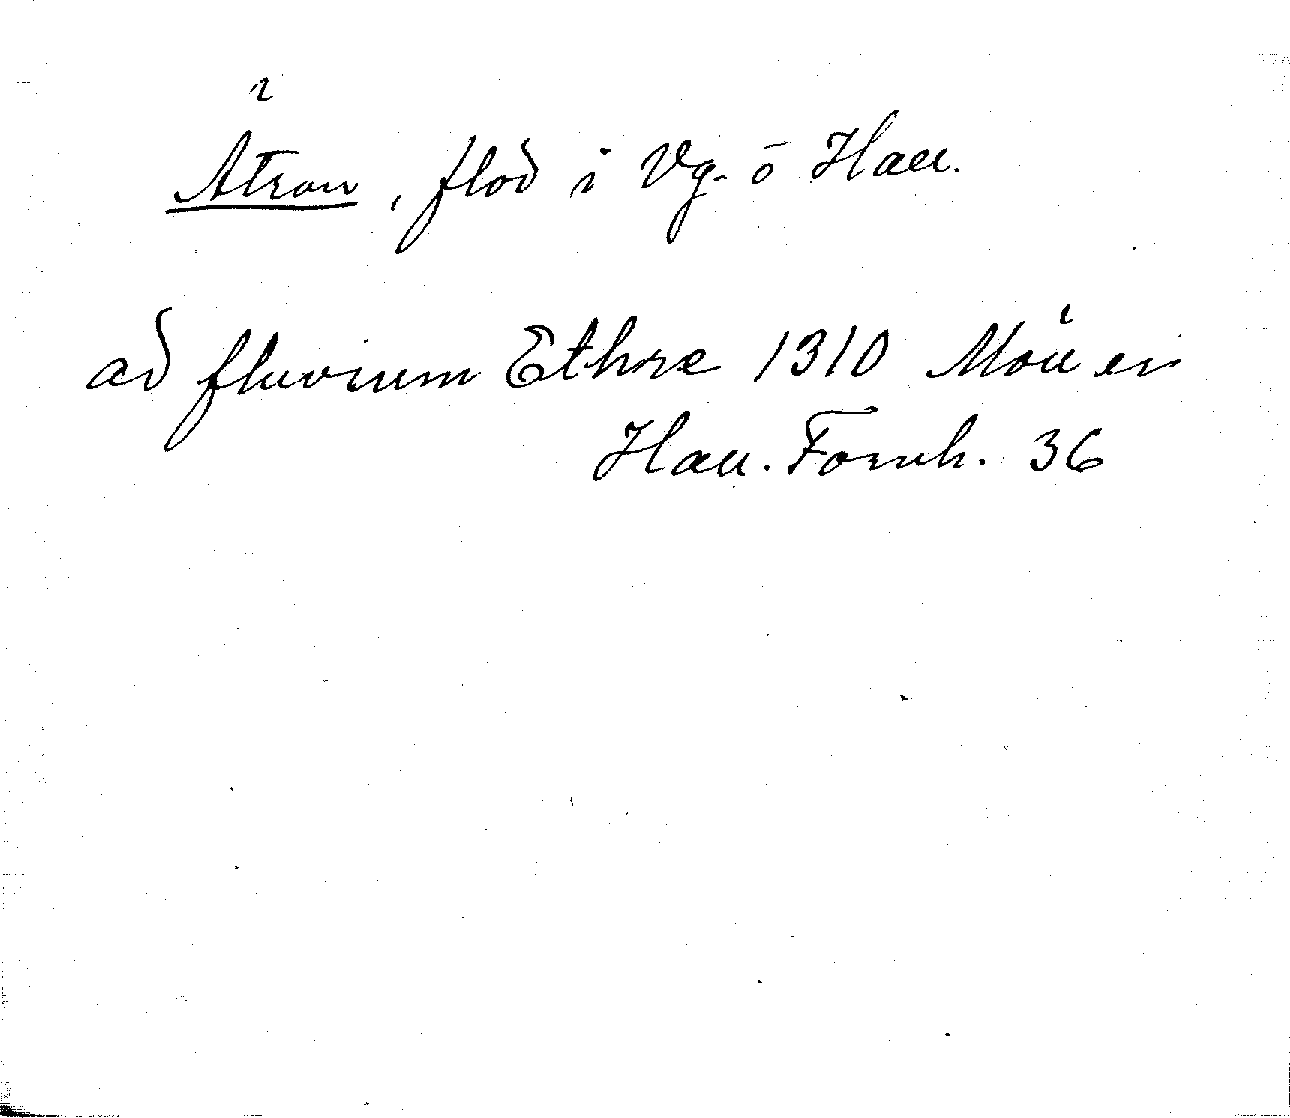 Ätran, flod i Vg. o Hall.
ad fluvium Ethræ 1310 Möller
Hall. Fornh. 36